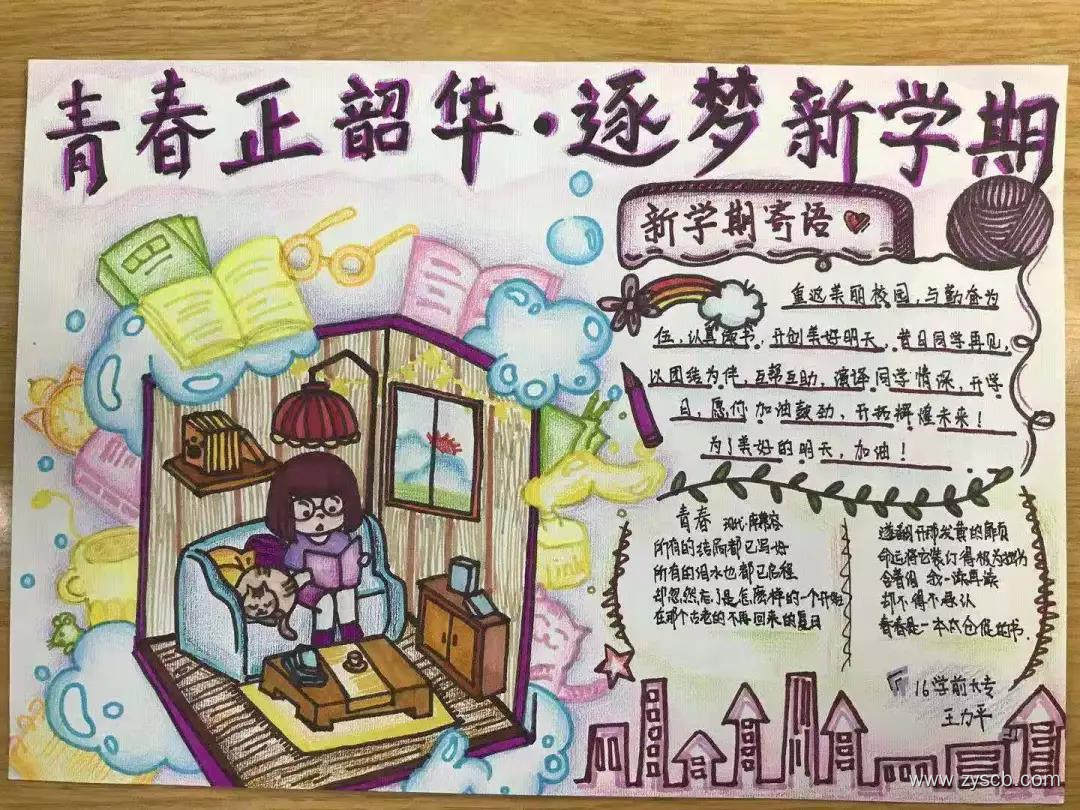 青春正韶华·逐梦新学期
新学期寄语
重返美丽校园,与勤奋为
伍,认真读书,开创美好明天,昔日同学再见,
以团结为伴,互帮互助,演译同学情深,开学
日,愿你加油鼓劲,开拓辉煌未来!
为了美好的明天,加油!
青春 现代·席慕容
所有的结局都已写好
所有的泪水也都已启程
却忽然忘了是怎麽样的一个开始
在那个古老的不再回来的夏日
遂翻开那发黄的扉页
命运将它装订得极为拙劣
含着泪 我一读再读
却不得不承认
青春是一本太仓促的书.
16学前大专
王力平
www.zyscb.com